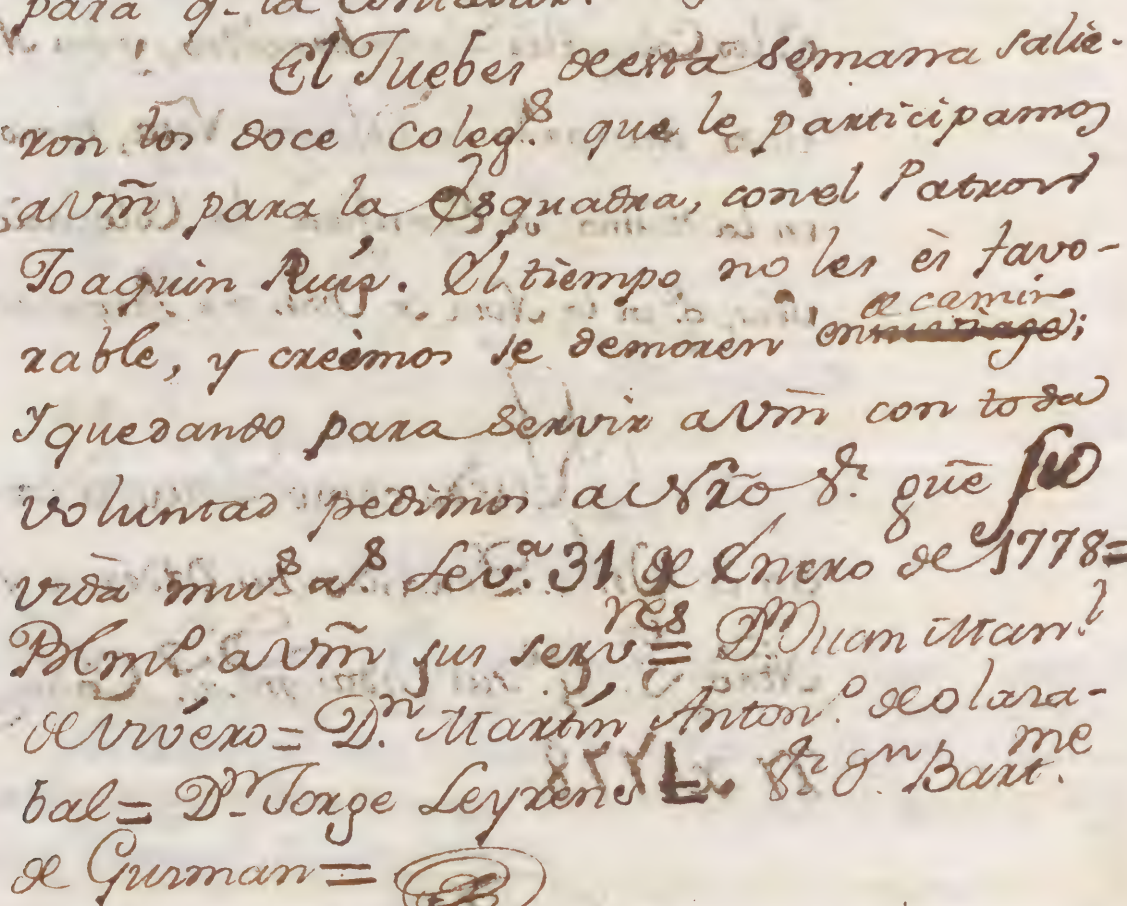 para q.e la
El Juebes de esta Semana salie-
ron los doce Coleg.s que le participamos
a Vm̃, para la Esquadra, con el Patron
Joaquin Ruiz. El tiempo no les es favo-
rable, y creemos se demoren en
de camin
Y quedando para servir a Vm̃ con toda
voluntad pedimos a Nr̃o S.r gũe su
vida mu.s a.s Sev.a 31 de Enero de 1778=
BlmL a Vm̃ sus serv.res = D.n Juan Man.l
de Vivero= D.n Martin Anton.o de olaza-
bal= D.n Jorge Leyrens =. S.r D.n Bart.me
de Gusman=